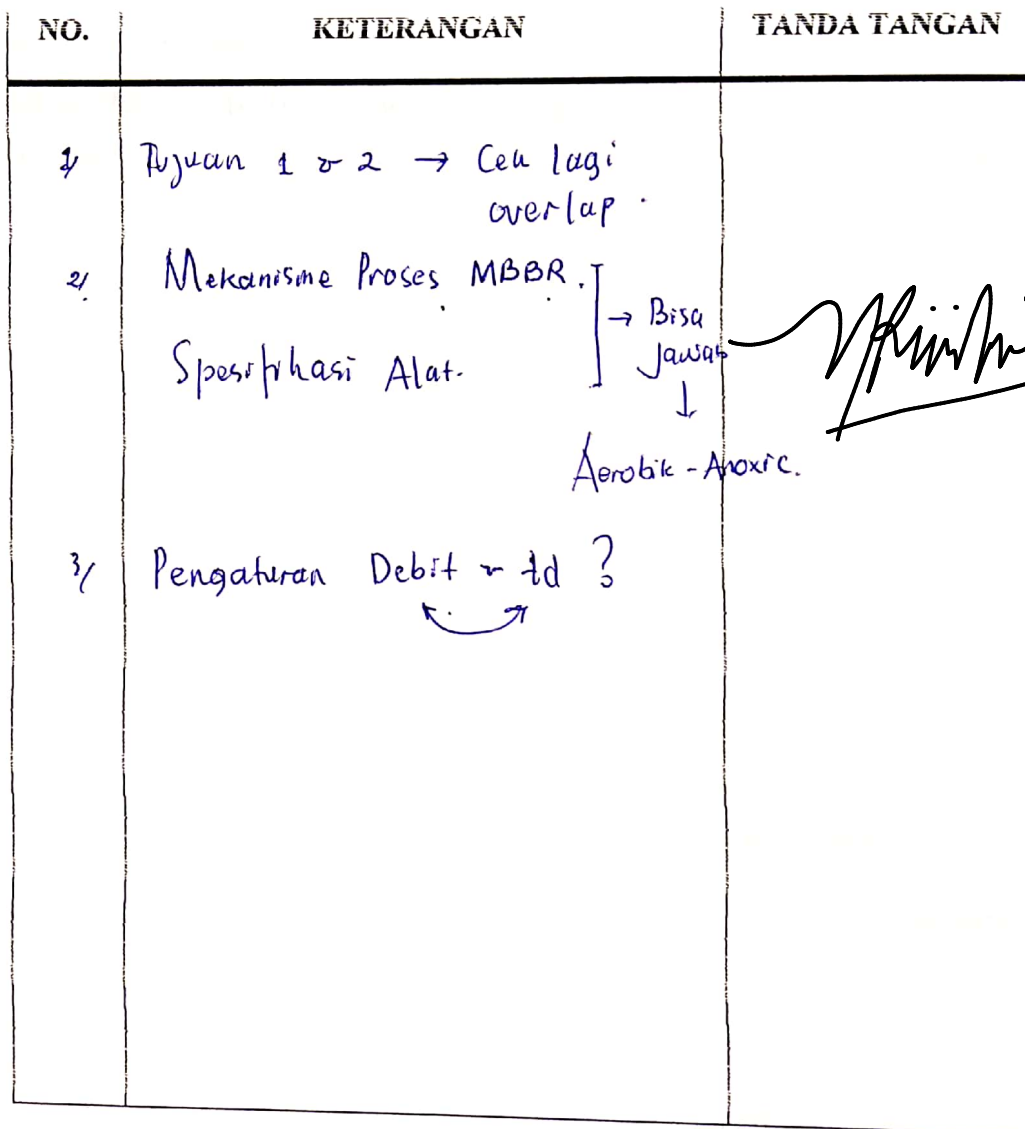 NO. KETERANGAN TANDA TANGAN
1/ Tujuan 1 & 2 → Cek lagi
overlap.
2/ Mekanisme Proses MBBR.
→ Bisa
Jawab
Spesifikasi Alat.
↓
Aerobik - Anoxic.
3/ Pengaturan Debit & td ?